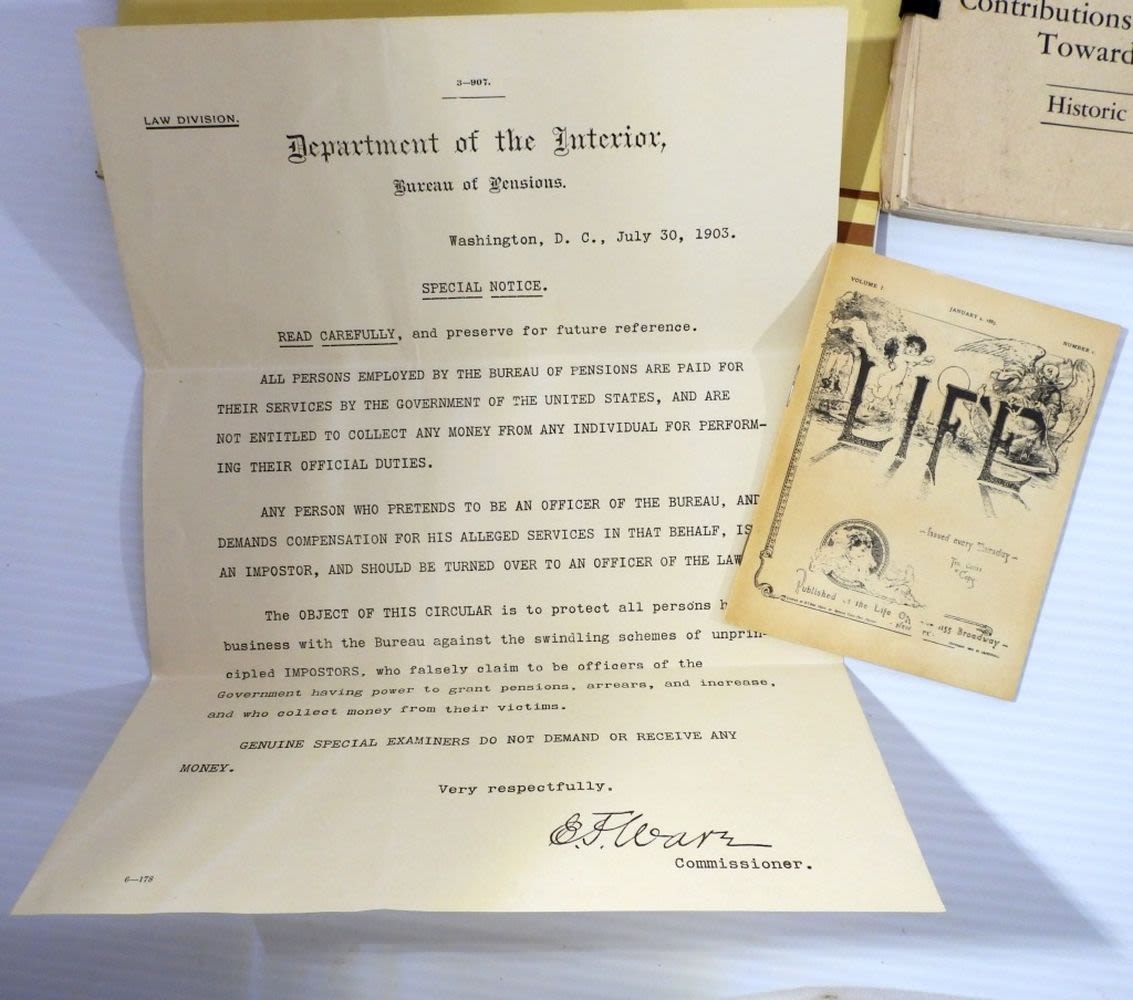 3—907.
LAW DIVISION.
Department of the Interior,
Bureau of Pensions.
Washington, D. C., July 30, 1903.
SPECIAL NOTICE.
READ CAREFULLY, and preserve for future reference.
ALL PERSONS EMPLOYED BY THE BUREAU OF PENSIONS ARE PAID FOR
THEIR SERVICES BY THE GOVERNMENT OF THE UNITED STATES, AND ARE
NOT ENTITLED TO COLLECT ANY MONEY FROM ANY INDIVIDUAL FOR PERFORM-
ING THEIR OFFICIAL DUTIES.
ANY PERSON WHO PRETENDS TO BE AN OFFICER OF THE BUREAU, AND
DEMANDS COMPENSATION FOR HIS ALLEGED SERVICES IN THAT BEHALF, IS
AN IMPOSTOR, AND SHOULD BE TURNED OVER TO AN OFFICER OF THE LAW
The OBJECT OF THIS CIRCULAR is to protect all persons
business with the Bureau against the swindling schemes of unprin-
cipled IMPOSTORS, who falsely claim to be officers of the
Government having power to grant pensions, arrears, and increase,
and who collect money from their victims.
GENUINE SPECIAL EXAMINERS DO NOT DEMAND OR RECEIVE ANY
MONEY.
Very respectfully.
E. F. Ware
Commissioner.
6—178
Contributions
Toward
Historic
VOLUME I
JANUARY 4, 1883
NUMBER 1.
LIFE
— Issued every Thursday —
Copy
Published at the Life 1155 Broadway —